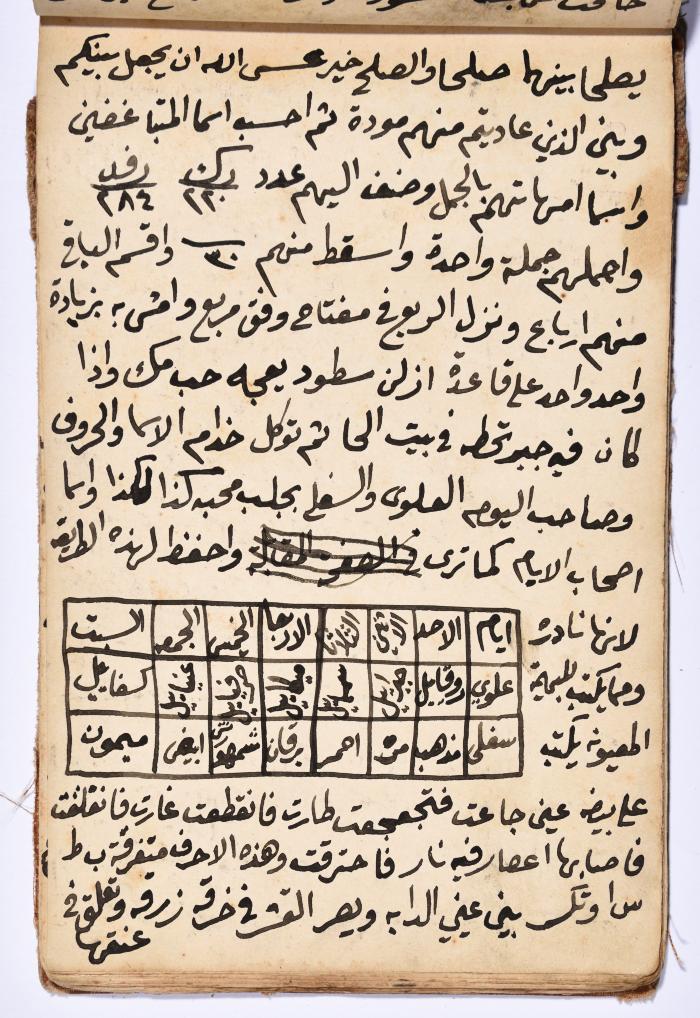 يصلحا بينهما صلحا والصلح خير عسى الله ان يجعل بينكم
وبين الذين عاديتم منهم مودة ثم احسب اسما المتباغضين
واسما امهاتهم بالجمل وضف اليهم عدد ركـ ٢٢٠ رفد ٢٨٤
واجملهم جملة واحدة واسقط منهم ٣٠ واقسم الباقي
منهم ارباع ونزل الربع في مفتاح وفق مربع وامش به بزيادة
واحد واحد على قاعدة ازلن سطود يعجه حب مك واذا
كان فيه جبر تحطه في بيت الحا ثم توكل خدام الاسما والحروف
وصاحب اليوم العلوى والسفلى بجلب محبه كذا لكذا واسما
اصحاب الايام كما ترى في واحفظ لهذه الطريقه
لانها نادره
ومما يكتب للبهيمة
المعيونه يكتب
ايام الاحد الاثنين الثلاثا الاربعا الخميس الجمعه السبت
علوي روقايل جبرايل سمسمايل ميكايل صرفيايل عنيايل كسفايل
سفلى مذهب مره احمر برقان شمهورش ابيض ميمون
على بيضه عين جاعت فتجعجعت طارت فانقطعت غارت فانقلفت
فاصابها اعصار فيه نار فاحترقت وهذه الاحرف متفرقة ب ط
س ا وتكسر بيني عيني الدابه ويصر القشر في خرقه زرقه وتعلق في
عنقها